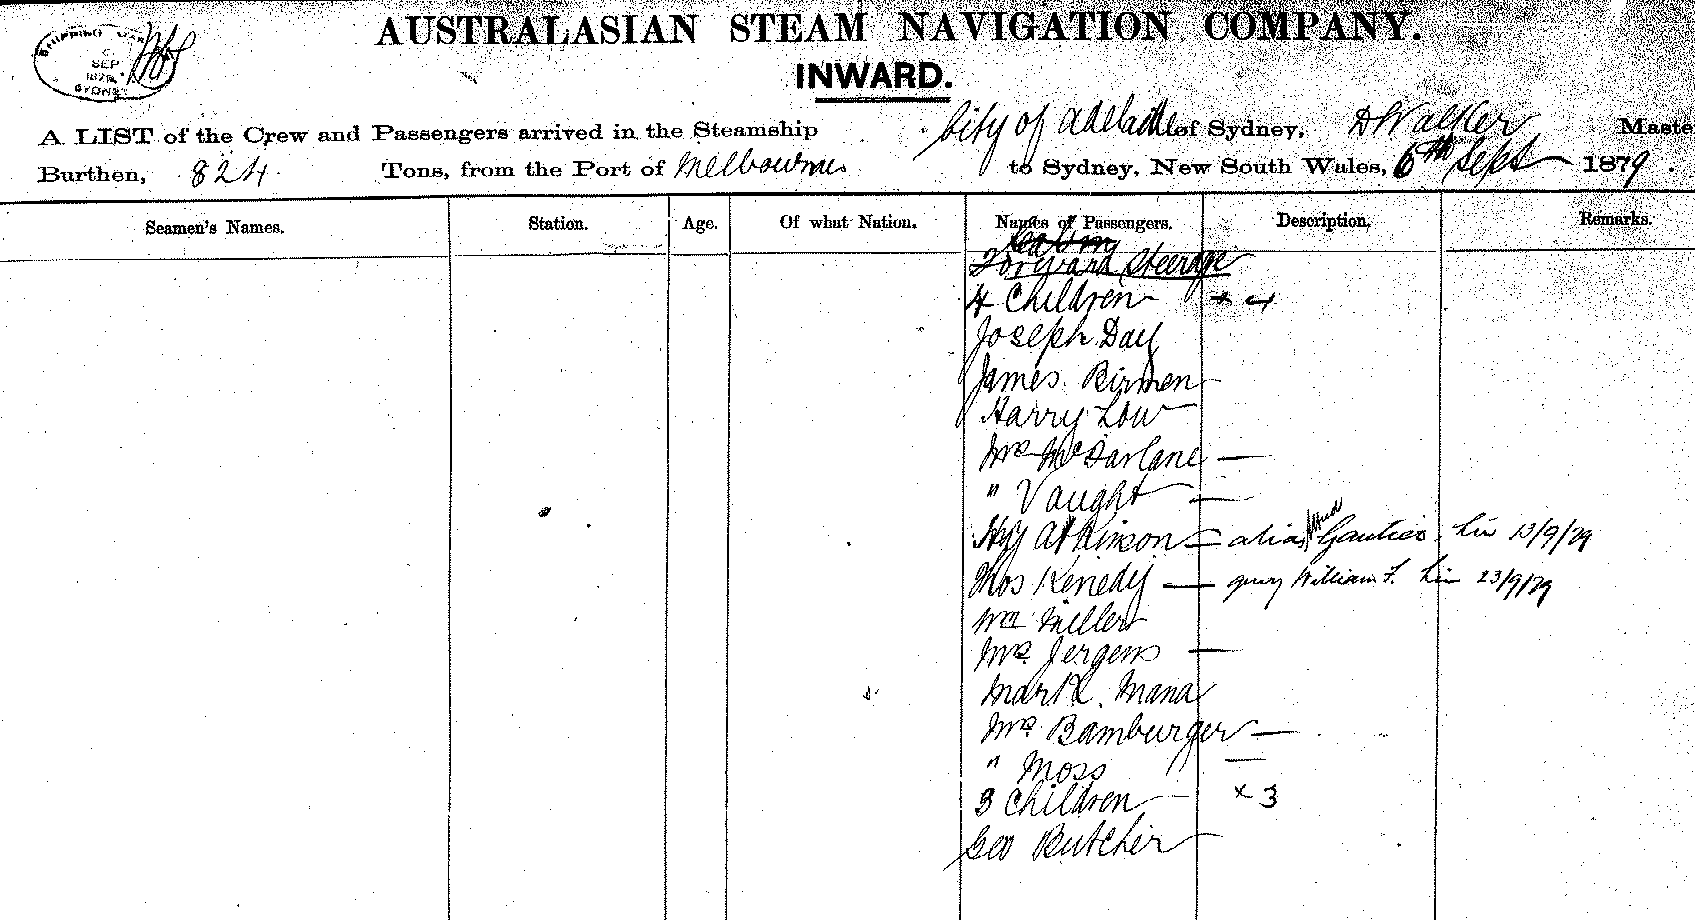 SHIPPING
SEP
1879
SYDNEY
AUSTRALASIAN STEAM NAVIGATION COMPANY.
INWARD.
A LIST of the Crew and Passengers arrived in the Steamship City of Adelaide of Sydney, D Walker Maste
Burthen, 824 Tons, from the Port of Melbourne to Sydney, New South Wales, 6th Sept 1879.
Seamen's Names. Station. Age. Of what Nation. Names of Passengers. Description. Remarks.
Cabin
Forward Steerage
4 Children × 4
Joseph Day
James Birmen
Harry Low
Mrs McFarlane —
" Vaught —
Hy Atkinson — alias Gautier 13/9/79
Thos Kenedy — query William F. 23/9/79
Wm Miller
Mrs Jergens —
Mark Mana
Mrs Bamburger —
" Moss —
3 Children × 3
Geo Butcher